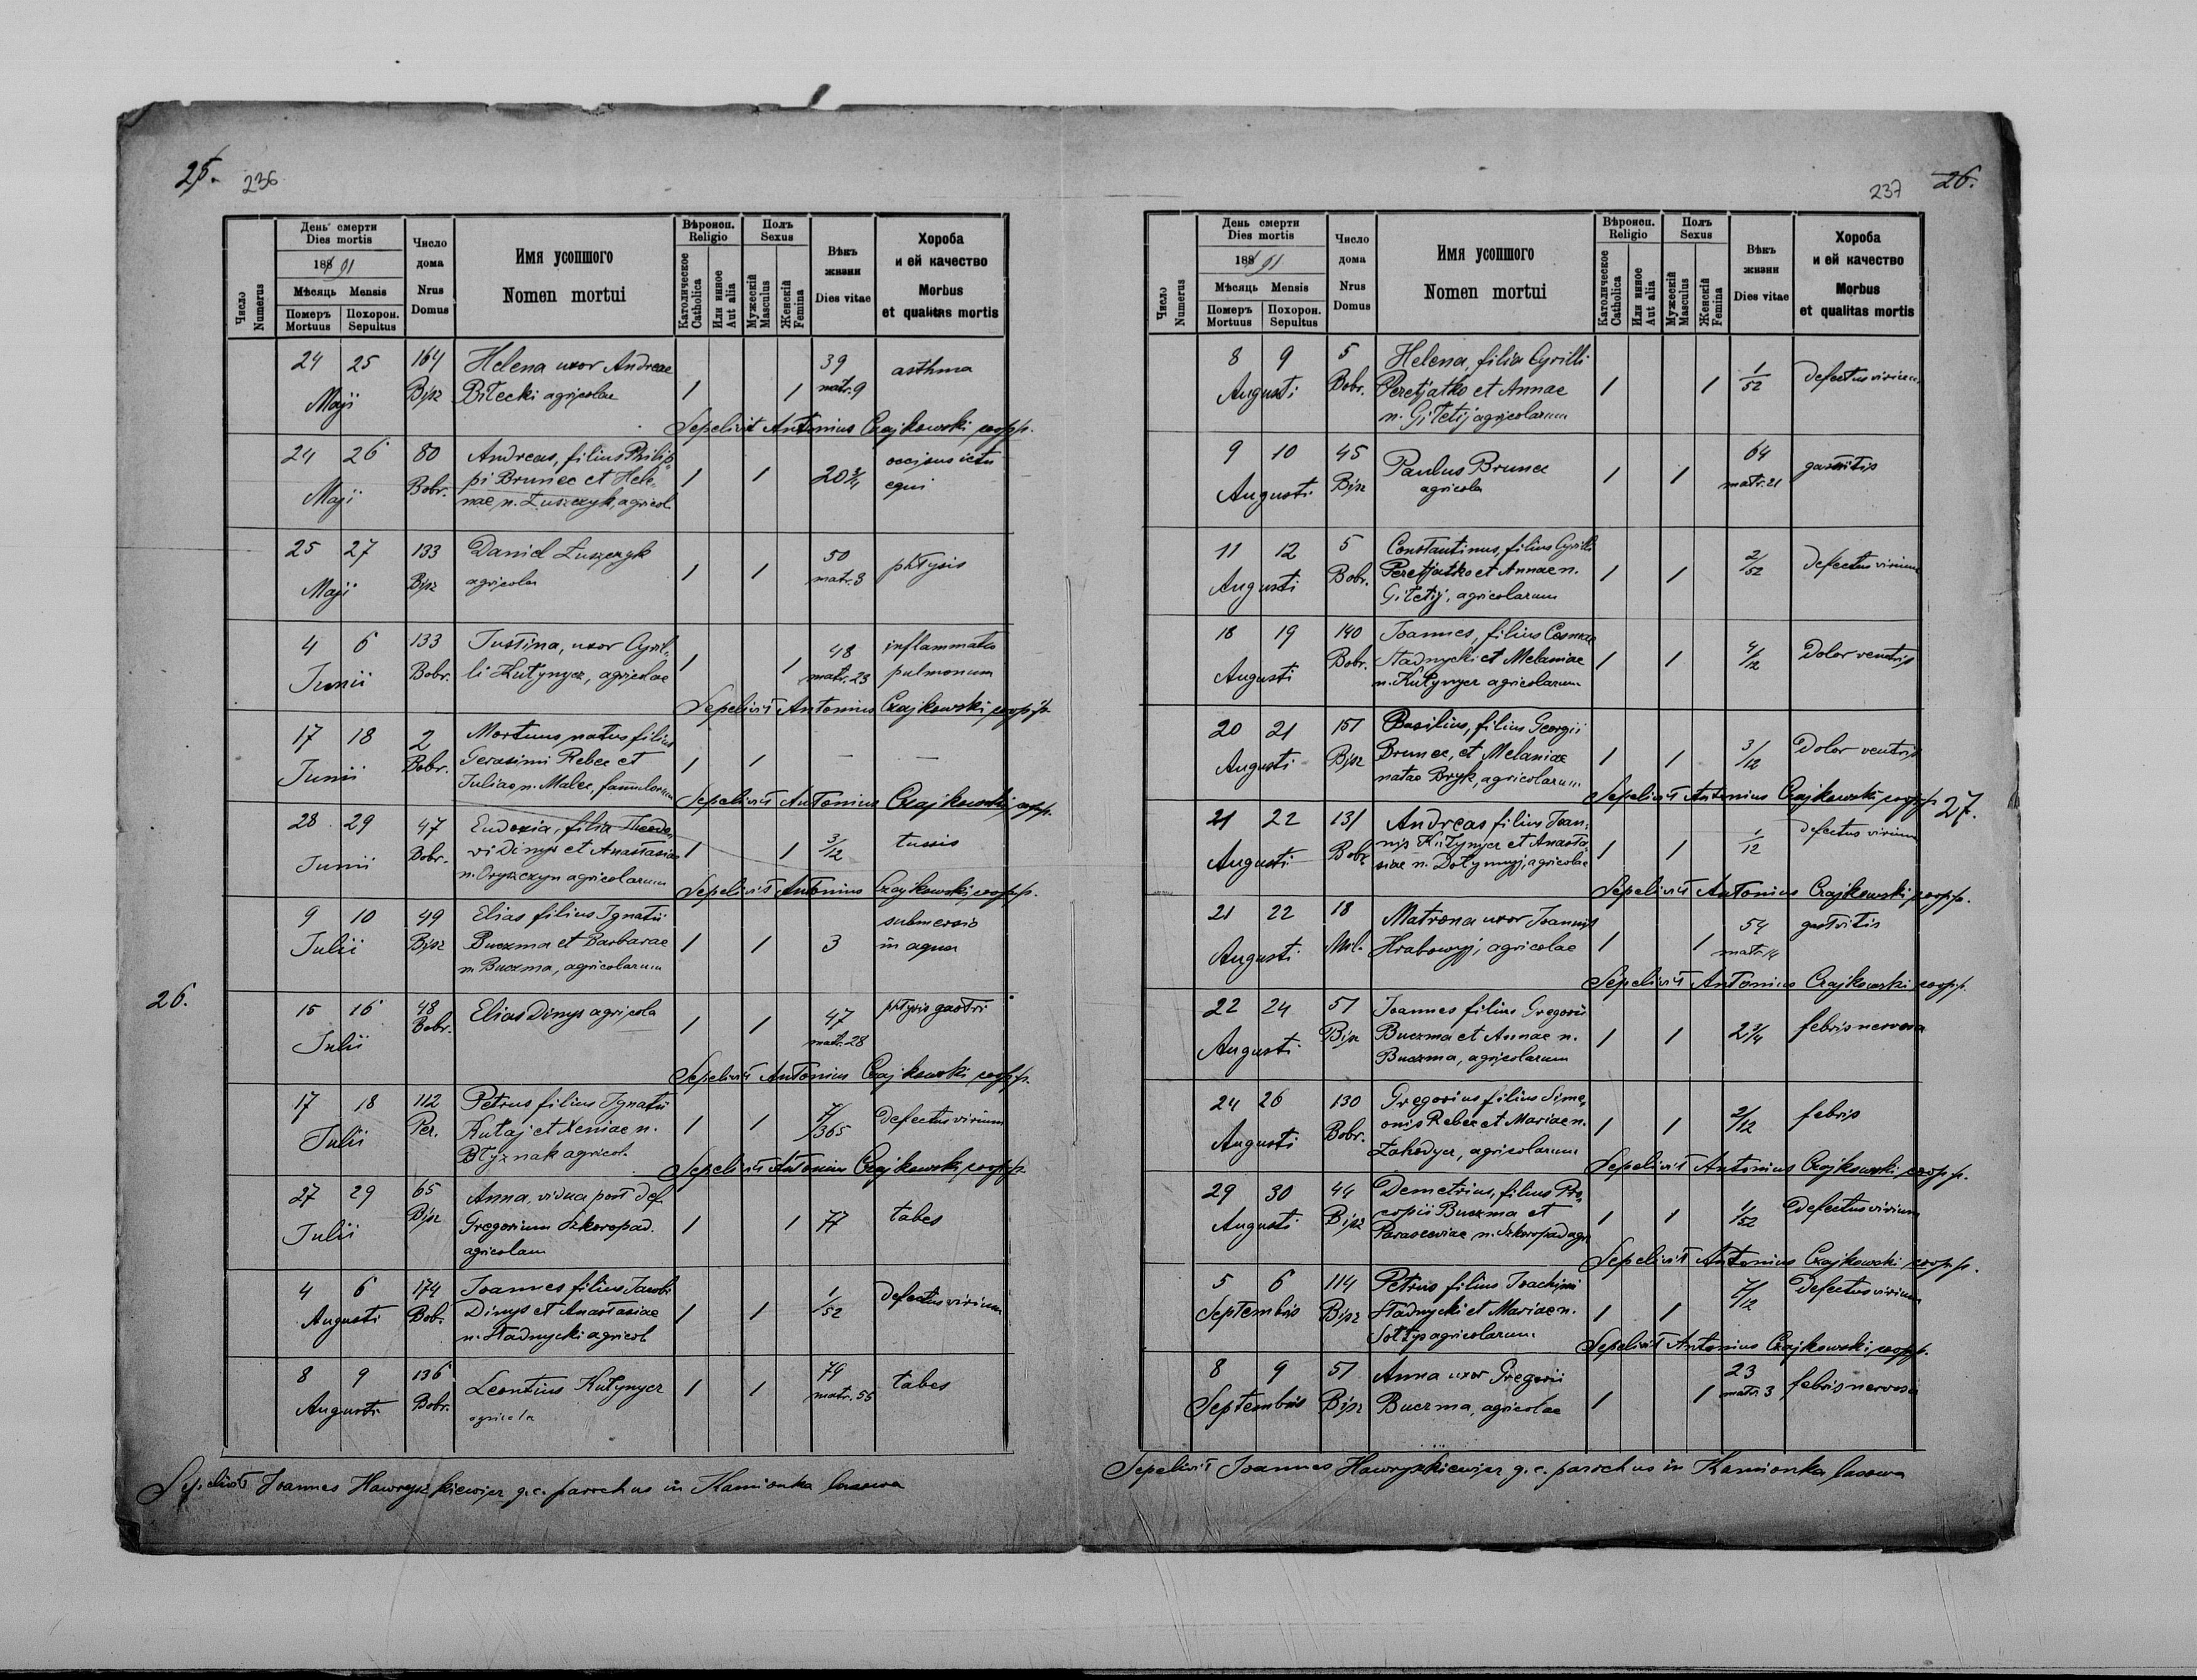 25. 236
День смерти
Dies mortis
1891
Мѣсяць Mensis
Померъ Похорон.
Mortuus Sepultus
Число Numerus
Число дома
Nrus Domus
Имя усопшого
Nomen mortui
Вѣроисп.
Religio
Католическое Catholica
Или инное Aut alia
Полъ
Sexus
Мужескій Masculus
Женскій Femina
Вѣкъ жизни
Dies vitae
Хороба
и ей качество
Morbus
et qualitas mortis
24 25 164 Helena uxor Andreae 39 asthma
Maji Bisz Bilecki agricolae 1 1 matr. 9
Sepelivit Antonius Czajkowski, coop.
24 26 80 Andreas, filius Philip- occisus ictu
Maji Bobr. pi Brunec et Hele- 1 1 20 3/4 equi
nae n. Łuszczyk, agricol.
25 27 133 Daniel Łuszczyk 50 phtysis
Maji Bisz agricola 1 1 matr. 8
4 6 133 Justina, uxor Cyril- 48 inflammatio
Junii Bobr. li Kutynycz, agricolae 1 1 matr. 23 pulmonum
Sepelivit Antonius Czajkowski, coop.
17 18 2 Mortuus natus filius
Junii Bobr. Gerasimi Rebec et 1 1 — —
Juliae n. Malec, famulorum
Sepelivit Antonius Czajkowski, coop.
28 29 47 Eudoxia, filia Theodo- 3/12 tussis
Junii Bobr. ri Dinys et Anastasiae 1 1
n. Oryszczyn agricolarum
Sepelivit Antonius Czajkowski, coop.
9 10 49 Elias filius Ignatii submersio
Julii Bisz Buczma et Barbarae 1 1 3 in aqua
n. Buczma, agricolarum
26.
15 16 48 Elias Dinys agricola 47 phtysis gastri
Julii Bobr. 1 1 matr. 28
Sepelivit Antonius Czajkowski, coop.
17 18 112 Petrus filius Ignatii 7/365 Defectus virium
Julii Per. Kutaj et Xeniae n. 1 1
Błyznak agricol.
Sepelivit Antonius Czajkowski, coop.
27 29 65 Anna, vidua post def. 77 tabes
Julii Bisz Gregorium Szkoropad. 1 1
agricolam
4 6 174 Joannes filius Jacobi 1/52 defectus virium
Augusti Bobr. Dinys et Anastasiae 1 1
n. Stadnycki agricol
8 9 136 Leontius Kutynycz 79 tabes
Augusti Bobr. agricola 1 1 matr. 55
Sepelivit Joannes Hawryszkiewicz g. c. parochus in Kamionka lasowa
237 26.
День смерти
Dies mortis
1891
Мѣсяць Mensis
Померъ Похорон.
Mortuus Sepultus
Число Numerus
Число дома
Nrus Domus
Имя усопшого
Nomen mortui
Вѣроисп.
Religio
Католическое Catholica
Или инное Aut alia
Полъ
Sexus
Мужескій Masculus
Женскій Femina
Вѣкъ жизни
Dies vitae
Хороба
и ей качество
Morbus
et qualitas mortis
8 9 5 Helena, filia Cyrilli 1/52 defectus virium
Augusti Bobr. Peretjatko et Annae 1 1
n. Giletij agricolarum
9 10 45 Paulus Brunec 64 gastritis
Augusti Bisz agricola 1 1 matr. 21
11 12 5 Constantinus, filius Cyrilli 2/52 defectus virium
Augusti Bobr. Peretjatko et Annae n. 1 1
Giletij, agricolarum
18 19 140 Joannes, filius Cosmae 4/12 Dolor ventris
Augusti Bobr. Stadnycki et Melaniae 1 1
n. Kutynycz agricolarum
20 21 151 Basilius, filius Georgii 3/12 Dolor ventris
Augusti Bisz Brunec, et Melaniae 1 1
natae Bryk, agricolarum
Sepelivit Antonius Czajkowski, coop. 27.
21 22 131 Andreas filius Joan- 1/12 defectus virium
Augusti Bobr. nis Kutynycz et Anasta- 1 1
siae n. Dołynnyj, agricolae
Sepelivit Antonius Czajkowski, coop.
21 22 18 Matrona uxor Joannis 54 gastritis
Augusti Mil. Hrabowyj, agricolae 1 1 matr. 14
Sepelivit Antonius Czajkowski, coop.
22 24 51 Joannes filius Gregorii febris nervosa
Augusti Bisz Buczma et Annae n. 1 1 2 3/4
Buczma, agricolarum
24 26 130 Gregorius filius Sime- 2/12 febris
Augusti Bobr. onis Rebec et Mariae n. 1 1
Zahodycz, agricolarum
Sepelivit Antonius Czajkowski, coop.
29 30 44 Demetrius, filius Pro- 1/52 Defectus virium
Augusti Bisz copii Buczma et 1 1
Parasceviae n. Szkoropad agr.
Sepelivit Antonius Czajkowski coop.
5 6 114 Petrus filius Joachimi 7/12 Defectus virium
Septembris Bisz Stadnycki et Mariae n. 1 1
Sołtys agricolarum.
Sepelivit Antonius Czajkowski, coop.
8 9 51 Anna uxor Gregorii 23 febris nervosa
Septembris Bisz Buczma, agricolae 1 1 matr. 3
Sepelivit Joannes Hawryszkiewicz g. c. parochus in Kamionka lasowa